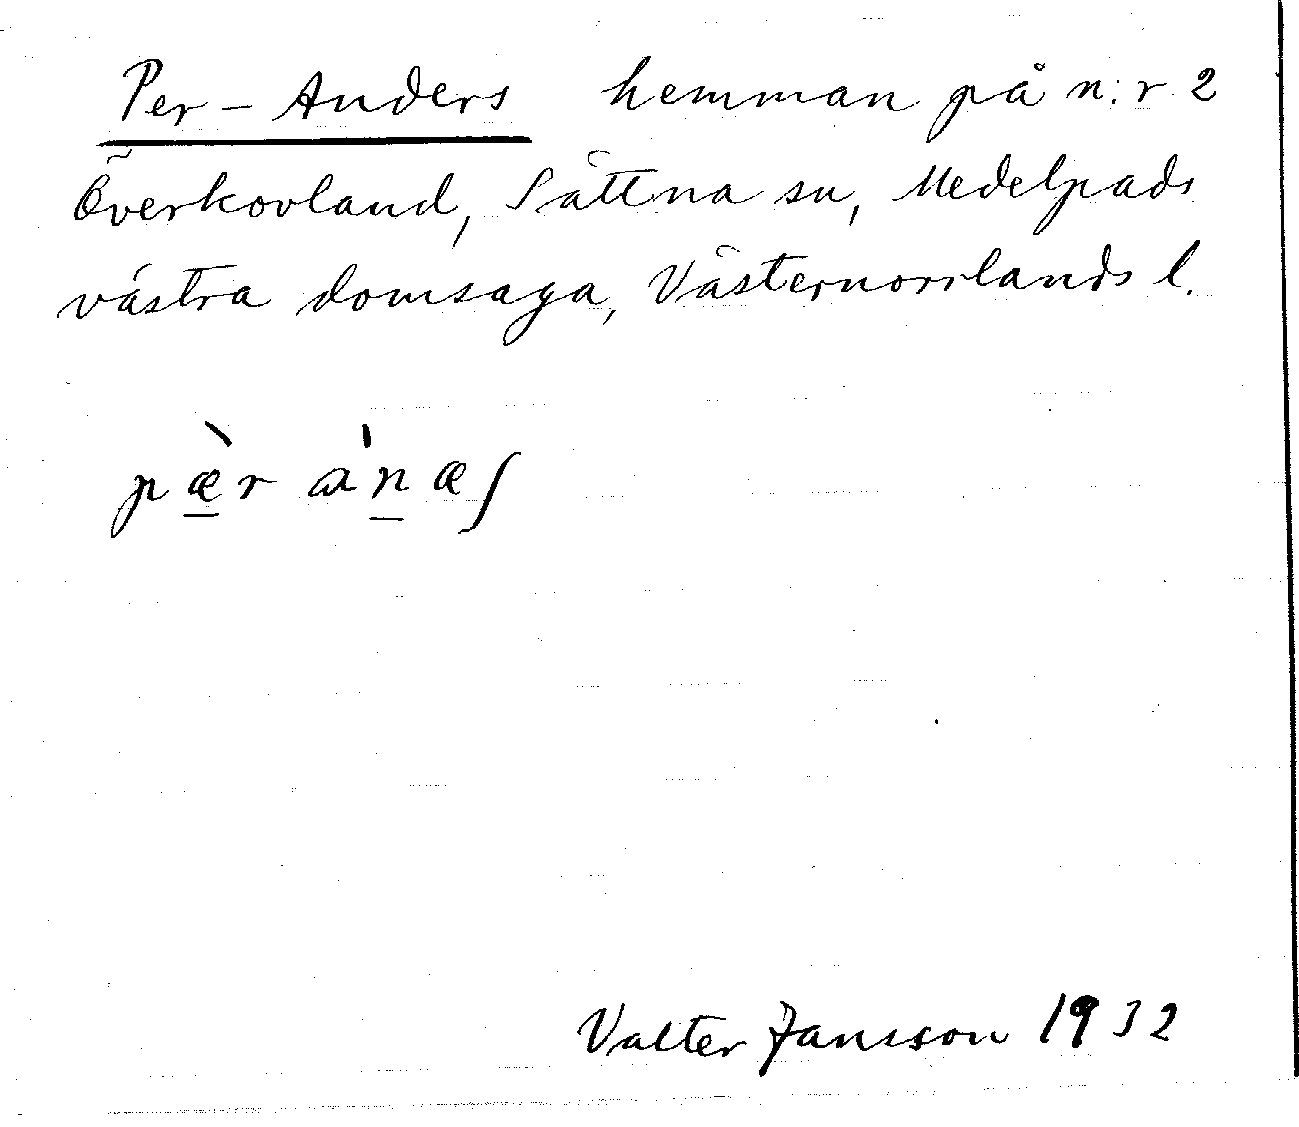 Per-Anders hemman på n:r 2
Överkovland, Sättna sn, Medelpads
västra domsaga, Västernorrlands l.
pæ̀r ànæʃ
Valter Jansson 1932